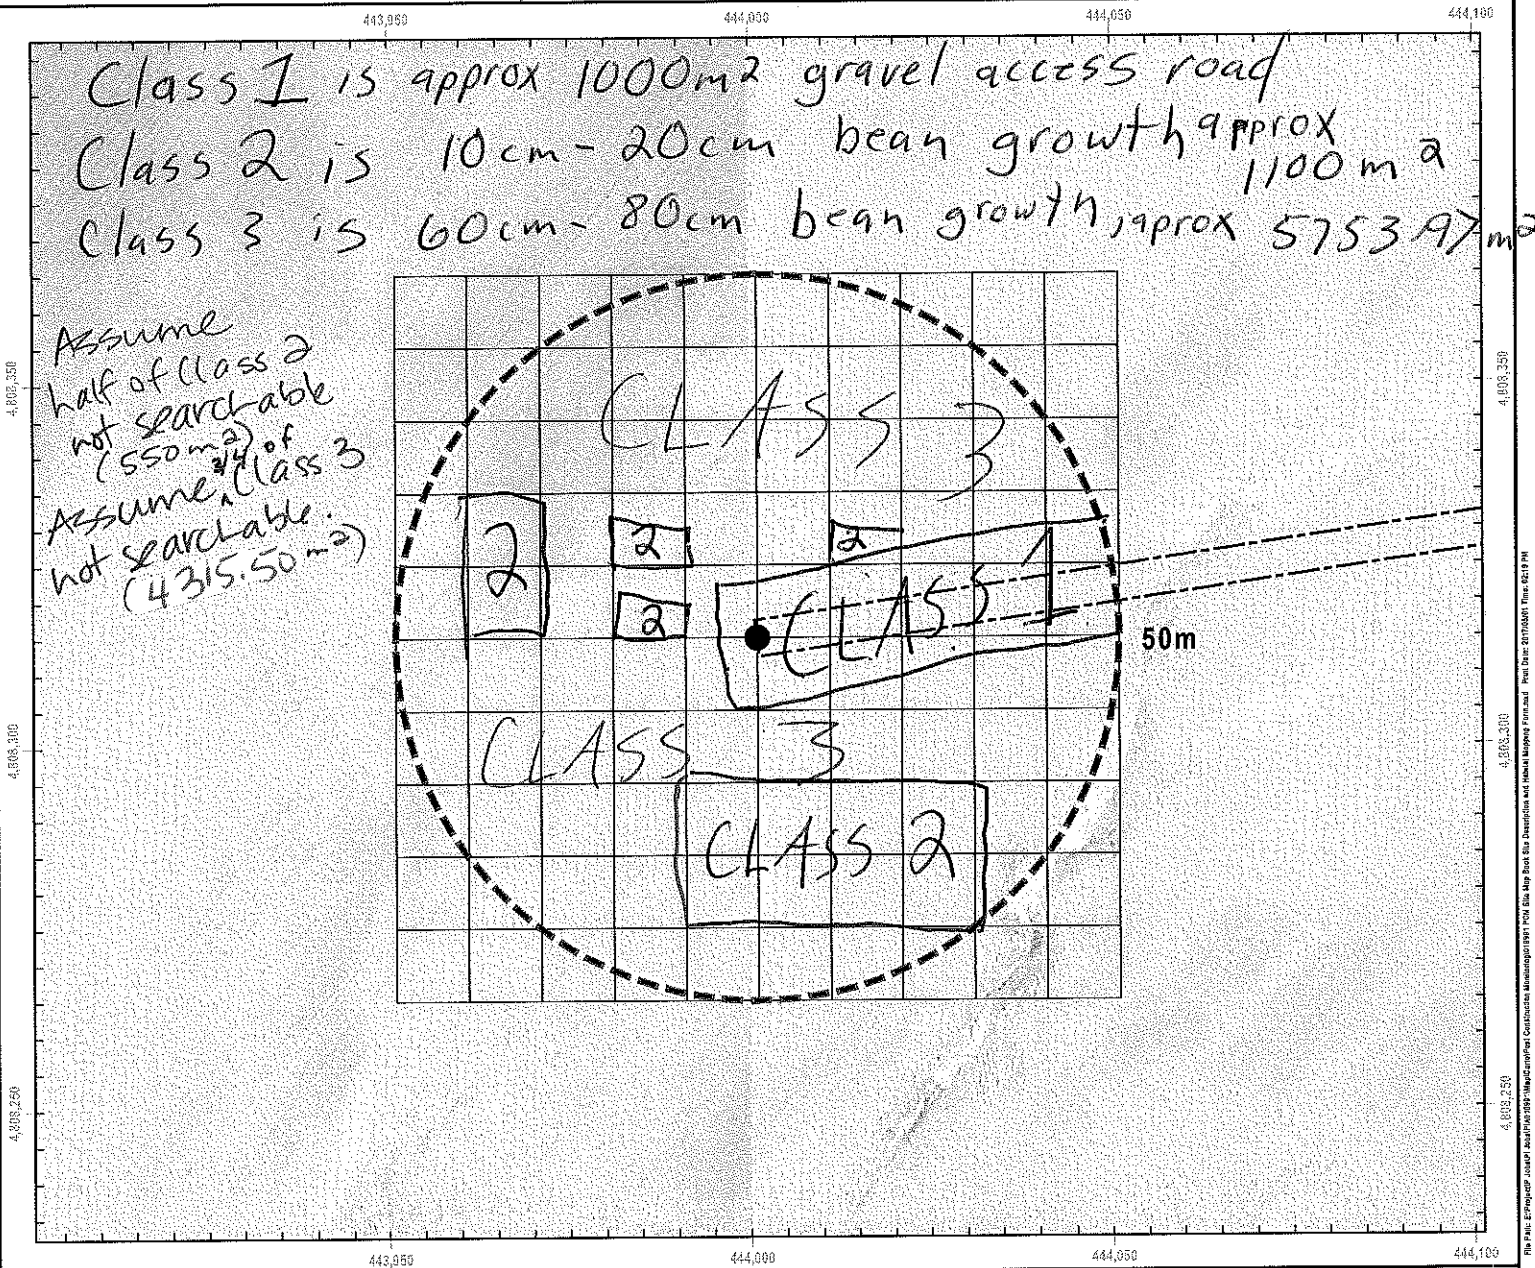 443,950 444,000 444,050 444,100
Class 1 is approx 1000m² gravel access road
Class 2 is 10cm - 20cm bean growth approx
1100 m²
Class 3 is 60cm - 80cm bean growth, aprox 5753.97 m²
Assume
half of Class 2
not searchable
(550m²)
Assume 3/4 of Class 3
not searchable.
(4315.50 m²)
4,808,350 4,808,350
CLASS 3
2 2 2
2
CLASS 1
50m
CLASS 3
4,808,300 4,808,300
CLASS 2
4,808,250 4,808,250
443,950 444,000 444,050 444,100